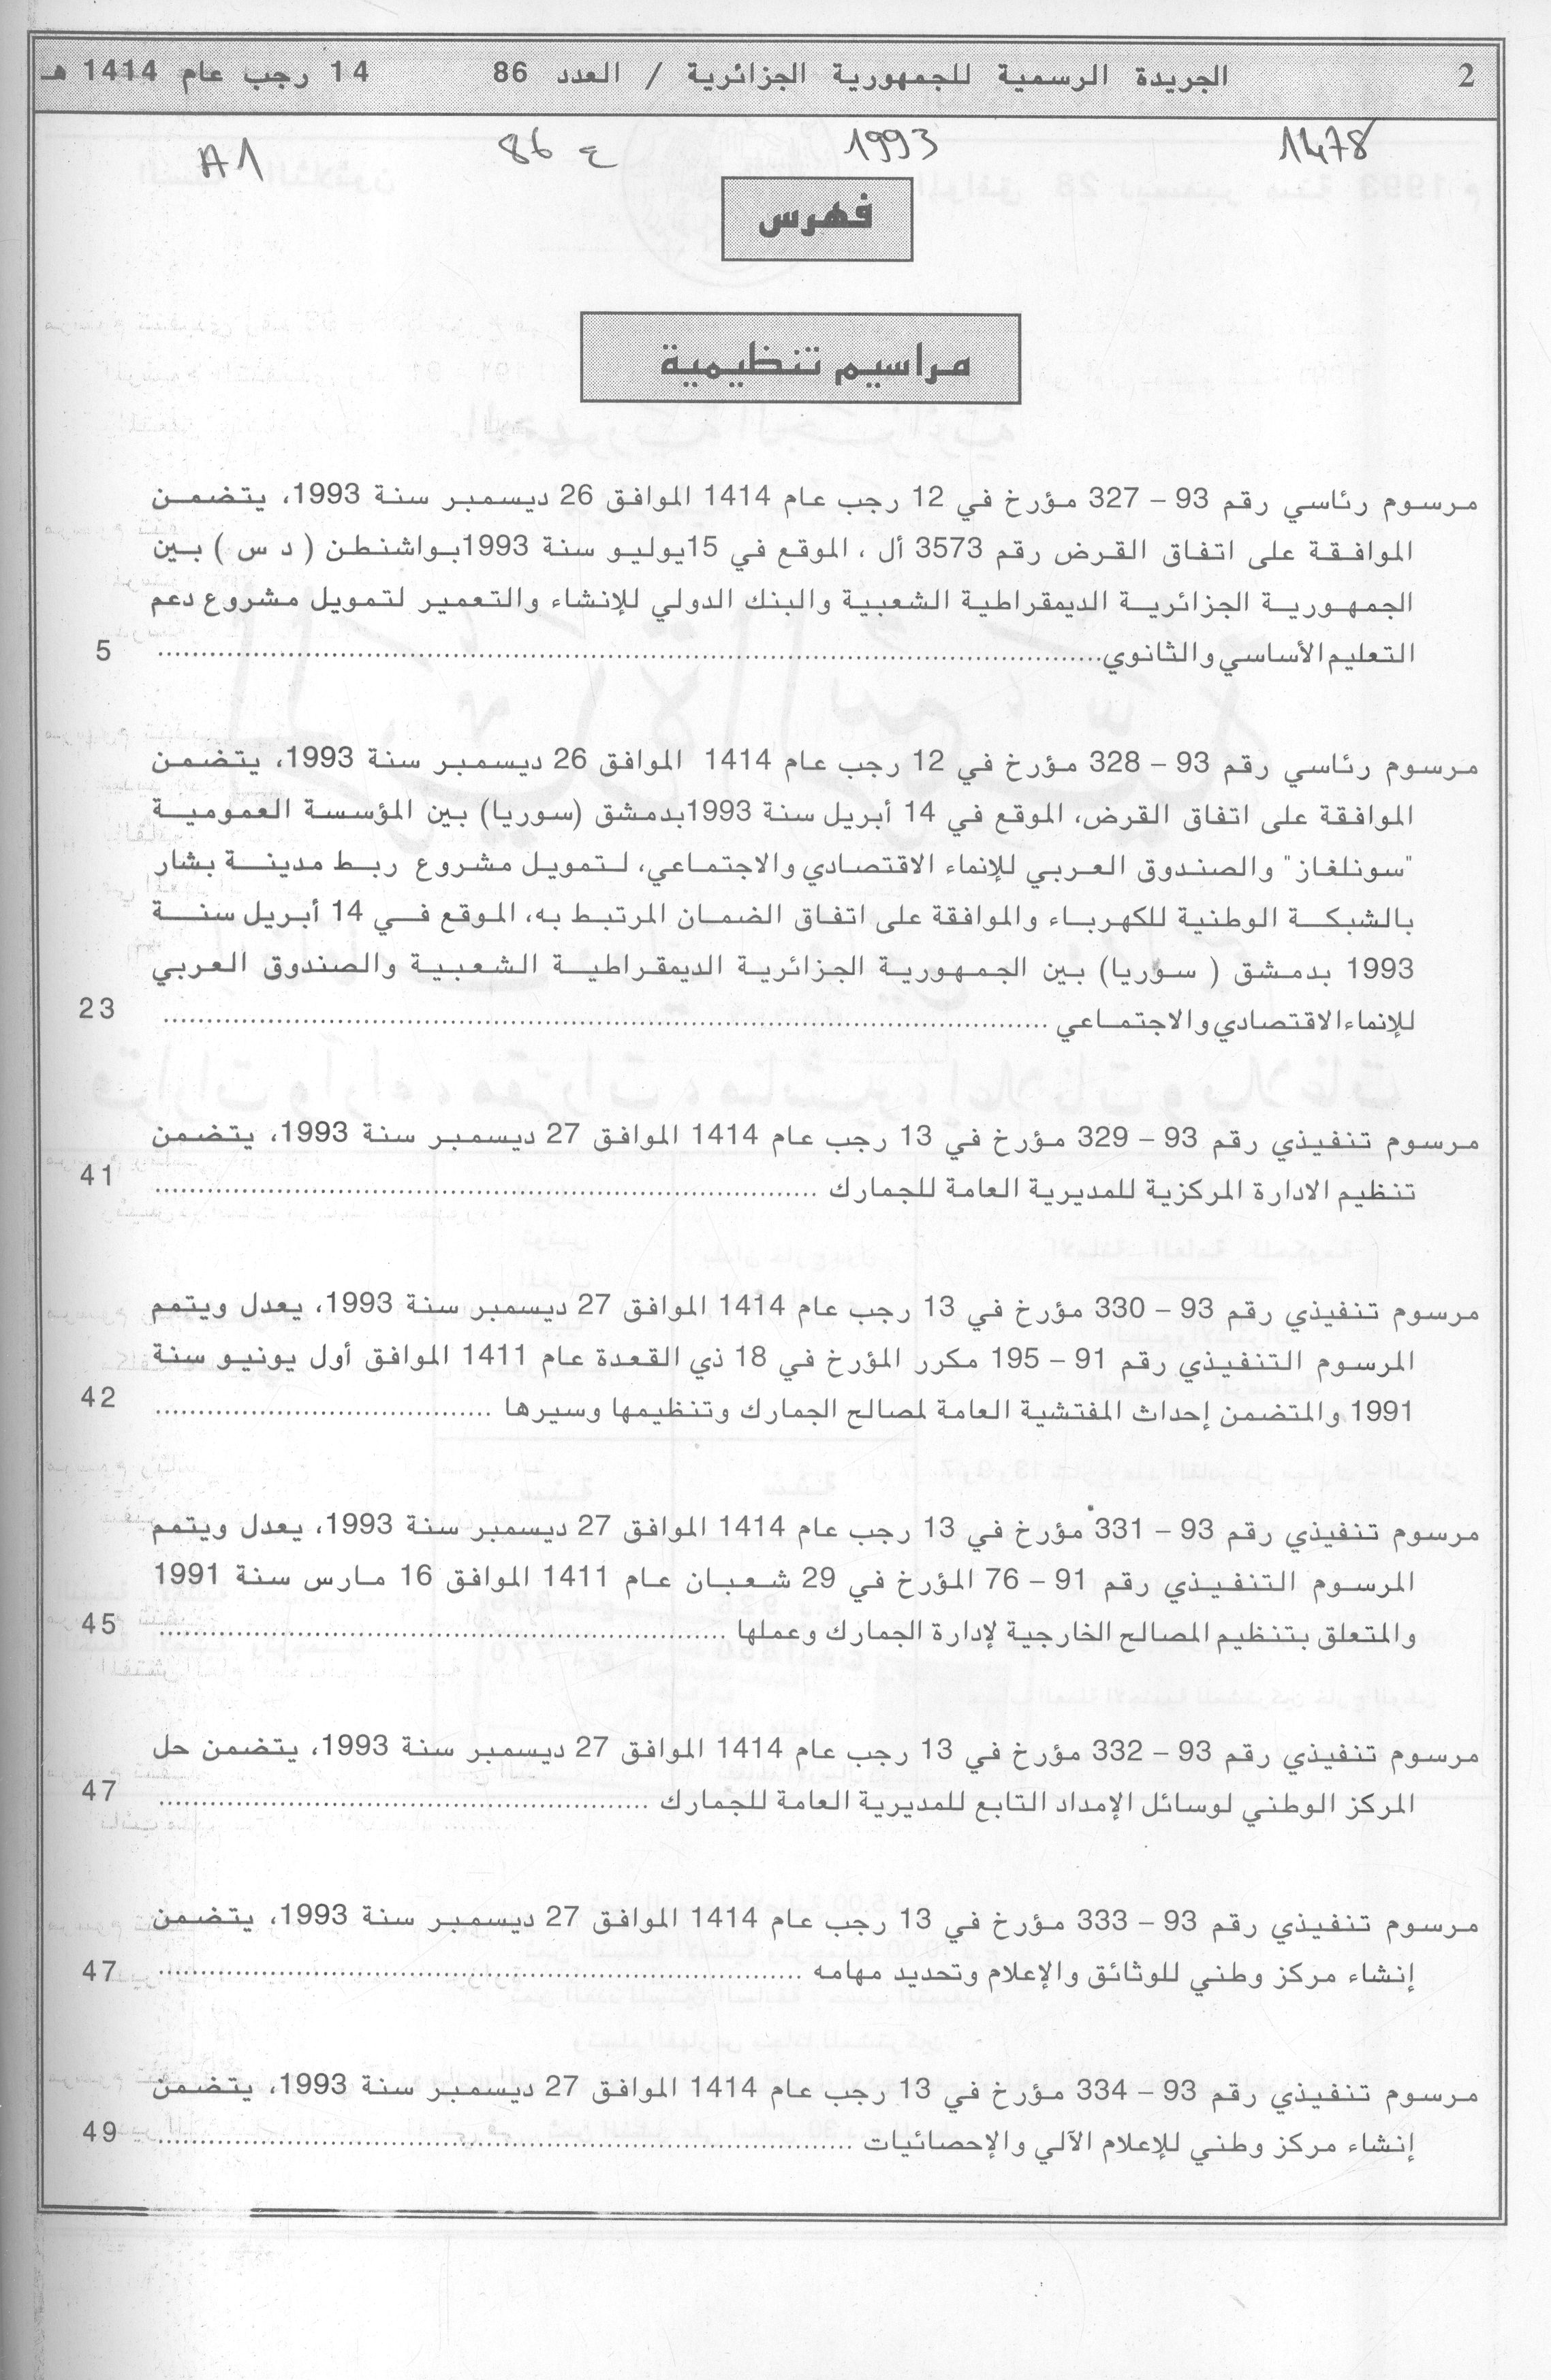 2 الجريدة الرسمية للجمهورية الجزائرية / العدد 86 14 رجب عام 1414 هـ
1478 1993 ع 86 A1
فهرس
مراسيم تنظيمية
مرسوم رئاسي رقم 93 – 327 مؤرخ في 12 رجب عام 1414 الموافق 26 ديسمبر سنة 1993، يتضمن
الموافقة على اتفاق القرض رقم 3573 أل ، الموقع في 15يوليو سنة 1993بواشنطن ( د س ) بين
الجمهورية الجزائرية الديمقراطية الشعبية والبنك الدولي للإنشاء والتعمير لتمويل مشروع دعم
التعليم الأساسي والثانوي........................................ 5
مرسوم رئاسي رقم 93 – 328 مؤرخ في 12 رجب عام 1414 الموافق 26 ديسمبر سنة 1993، يتضمن
الموافقة على اتفاق القرض، الموقع في 14 أبريل سنة 1993بدمشق (سوريا) بين المؤسسة العمومية
"سونلغاز" والصندوق العربي للإنماء الاقتصادي والاجتماعي، لتمويل مشروع ربط مدينة بشار
بالشبكة الوطنية للكهرباء والموافقة على اتفاق الضمان المرتبط به، الموقع في 14 أبريل سنة
1993 بدمشق ( سوريا) بين الجمهورية الجزائرية الديمقراطية الشعبية والصندوق العربي
للإنماء الاقتصادي والاجتماعي ........................................ 23
مرسوم تنفيذي رقم 93 – 329 مؤرخ في 13 رجب عام 1414 الموافق 27 ديسمبر سنة 1993، يتضمن
تنظيم الادارة المركزية للمديرية العامة للجمارك ........................................ 41
مرسوم تنفيذي رقم 93 – 330 مؤرخ في 13 رجب عام 1414 الموافق 27 ديسمبر سنة 1993، يعدل ويتمم
المرسوم التنفيذي رقم 91 – 195 مكرر المؤرخ في 18 ذي القعدة عام 1411 الموافق أول يونيو سنة
1991 والمتضمن إحداث المفتشية العامة لمصالح الجمارك وتنظيمها وسيرها ........................................ 42
مرسوم تنفيذي رقم 93 – 331 مؤرخ في 13 رجب عام 1414 الموافق 27 ديسمبر سنة 1993، يعدل ويتمم
المرسوم التنفيذي رقم 91 – 76 المؤرخ في 29 شعبان عام 1411 الموافق 16 مارس سنة 1991
والمتعلق بتنظيم المصالح الخارجية لإدارة الجمارك وعملها ........................................ 45
مرسوم تنفيذي رقم 93 – 332 مؤرخ في 13 رجب عام 1414 الموافق 27 ديسمبر سنة 1993، يتضمن حل
المركز الوطني لوسائل الإمداد التابع للمديرية العامة للجمارك ........................................ 47
مرسوم تنفيذي رقم 93 – 333 مؤرخ في 13 رجب عام 1414 الموافق 27 ديسمبر سنة 1993، يتضمن
إنشاء مركز وطني للوثائق والإعلام وتحديد مهامه ........................................ 47
مرسوم تنفيذي رقم 93 – 334 مؤرخ في 13 رجب عام 1414 الموافق 27 ديسمبر سنة 1993، يتضمن
إنشاء مركز وطني للإعلام الآلي والإحصائيات ........................................ 49